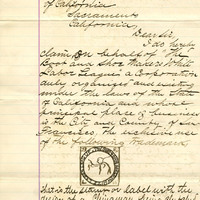 of California
Sacramento
California,
Dear Sir,
I do hereby
claim, on behalf of "The
Boot and Shoe Makers White
Labor League" a Corporation
duly organized and existing
under the laws of the State
of California and whose
principal place of business
is the City and County of San
Francisco, the exclusive use
of the following trademark
that is the stamp or label with the
design of a Chinaman